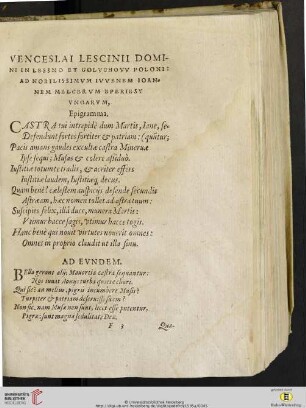 VENCESLAI LESCINII DOMI-
NI IN LESSNO ET GOLVCHOVV POLONI:
AD NOBILISSIMVM IVVENEM IOAN-
NEM
VNGARVM,
Epigramma.
CASTRA tui intrepidè dum Martis, Ione, se-
Defendunt fortes fortiter & patriam: (quutur;
Pacis amans gaudes excultæ castra Mineruæ
Ipse sequi; Musas & colere assiduò.
Iustitiæ totum te tradis, & acriter effers
Iustitiæ laudem, Iustitiæq; decus.
Quàm benè! cælestem auspicijs defende secundis
Astræam, hæc nomen tollet ad astra tuum:
Suscipies felix, illâ duce, munera Martis:
Primus hac toga.
Hanc benè qui nouit virtutes nouerit omnes:
Omnes in proprio claudit vt illa sinu.
AD EVNDEM.
BElla gerunt alij Mauortia castra sequuntur:
Nos iuuat Aonys turba
Qui sic? an melius, pigris incumbere Musis?
Turpiter & patriam deseruisse suam?
Non sic. nam Musæ non sunt, licet esse putentur,
Pigræ: sunt magnâ sedulitate Deæ.
F 3
Quæ-
UNIVERSITÄTS-
BIBLIOTHEK
HEIDELBERG
© Universitätsbibliothek Heidelberg